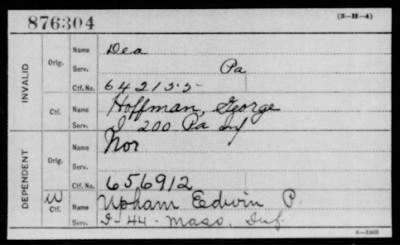 876304 (3-H-4)
INVALID
Orig. Name Dea
Serv. Pa
Ctf. No. 642155
Ctf. Name Hoffman, George
Serv. I 200 Pa Inf
DEPENDENT
Orig. Name Nor
Serv.
Ctf. No. 656912
W Ctf. Name Upham Edwin P.
Serv. I-44-Mass. Inf.